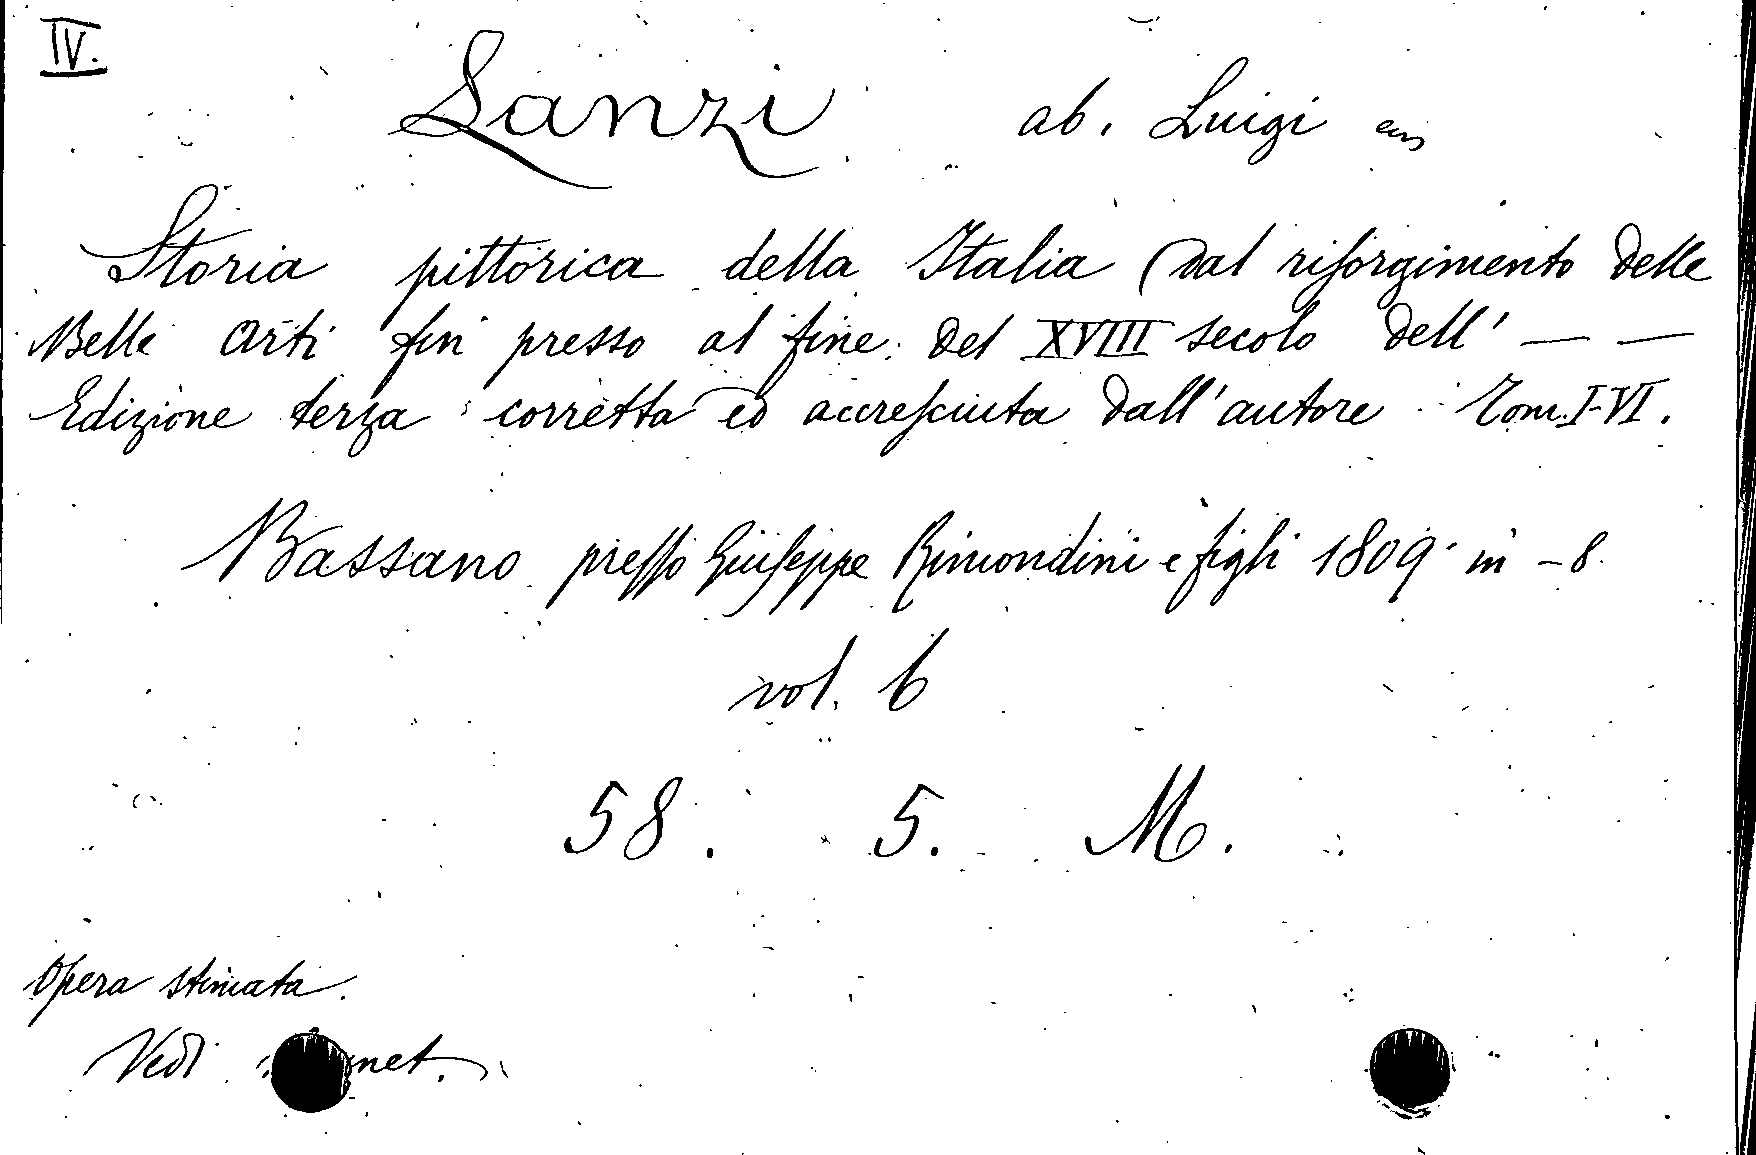 IV.
Lanzi ab. Luigi
Storia pittorica della Italia (dal riſorgimento delle
Belle arti fin presso al fine del XVIII secolo dell' — —
Edizione terza corretta ed accreſciuta dall'autore Tom. I-VI.
Bassano preſſo Giuſeppe Rimondini e figli 1809 in -8.
vol. 6
58. 5. M.
Opera stimata.
Vedi